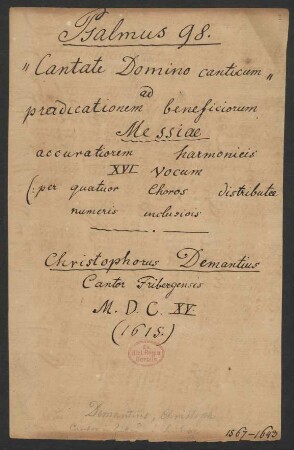 Psalmus 98.
"Cantate Domino canticum"
ad
prædicationem beneficiorum
Messiae
accuratiorem harmonicis
XVI Vocum
(: per quatuor Choros distributæ
numeris inclusiois
Christophorus Demantius
Cantor Fribergensis
M. D. C. XV
(1615.)
Demantius, Christoph
1567-1643